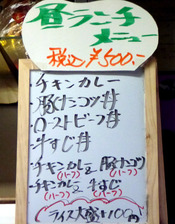 昼ランチ
メニュー
税込¥500-
・チキンカレー
・豚ナンコツ丼
・ローストビーフ丼
・牛すじ丼
・チキンカレー 豚ナンコツ
(ハーフ) (ハーフ)
・チキンカレー 牛すじ
(ハーフ) (ハーフ)
ライス大盛+100円